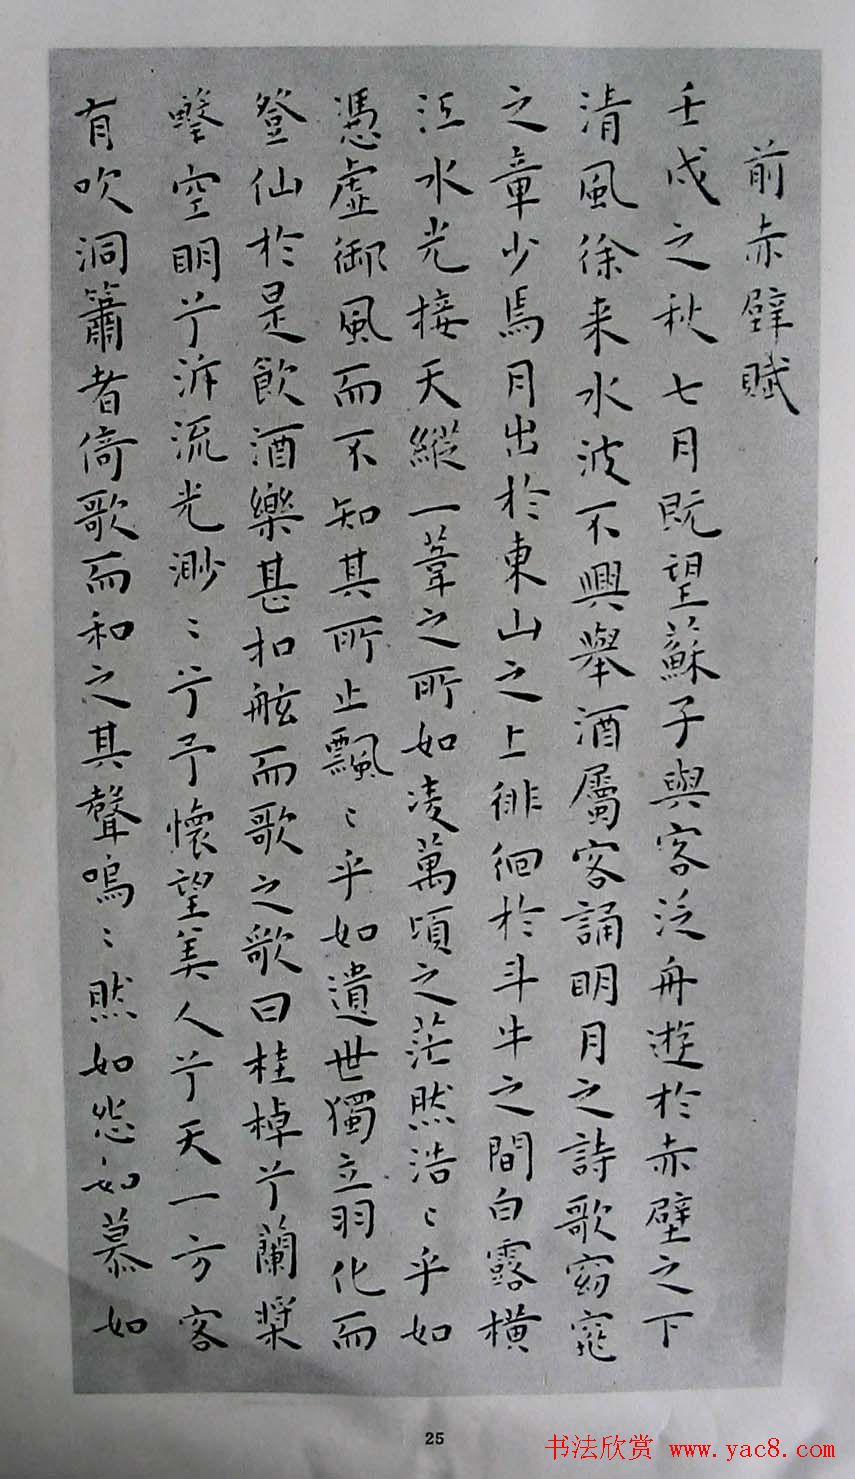 前赤壁賦
壬戌之秋七月既望蘇子與客泛舟遊於赤壁之下
清風徐來水波不興舉酒屬客誦明月之詩歌窈窕
之章少焉月出於東山之上徘徊於斗牛之間白露橫
江水光接天縱一葦之所如凌萬頃之茫然浩〻乎如
憑虛御風而不知其所止飄〻乎如遺世獨立羽化而
登仙於是飲酒樂甚扣舷而歌之歌曰桂棹兮蘭槳
擊空明兮泝流光渺〻兮予懷望美人兮天一方客
有吹洞簫者倚歌而和之其聲嗚〻然如怨如慕如
25
书法欣赏 www.yac8.com